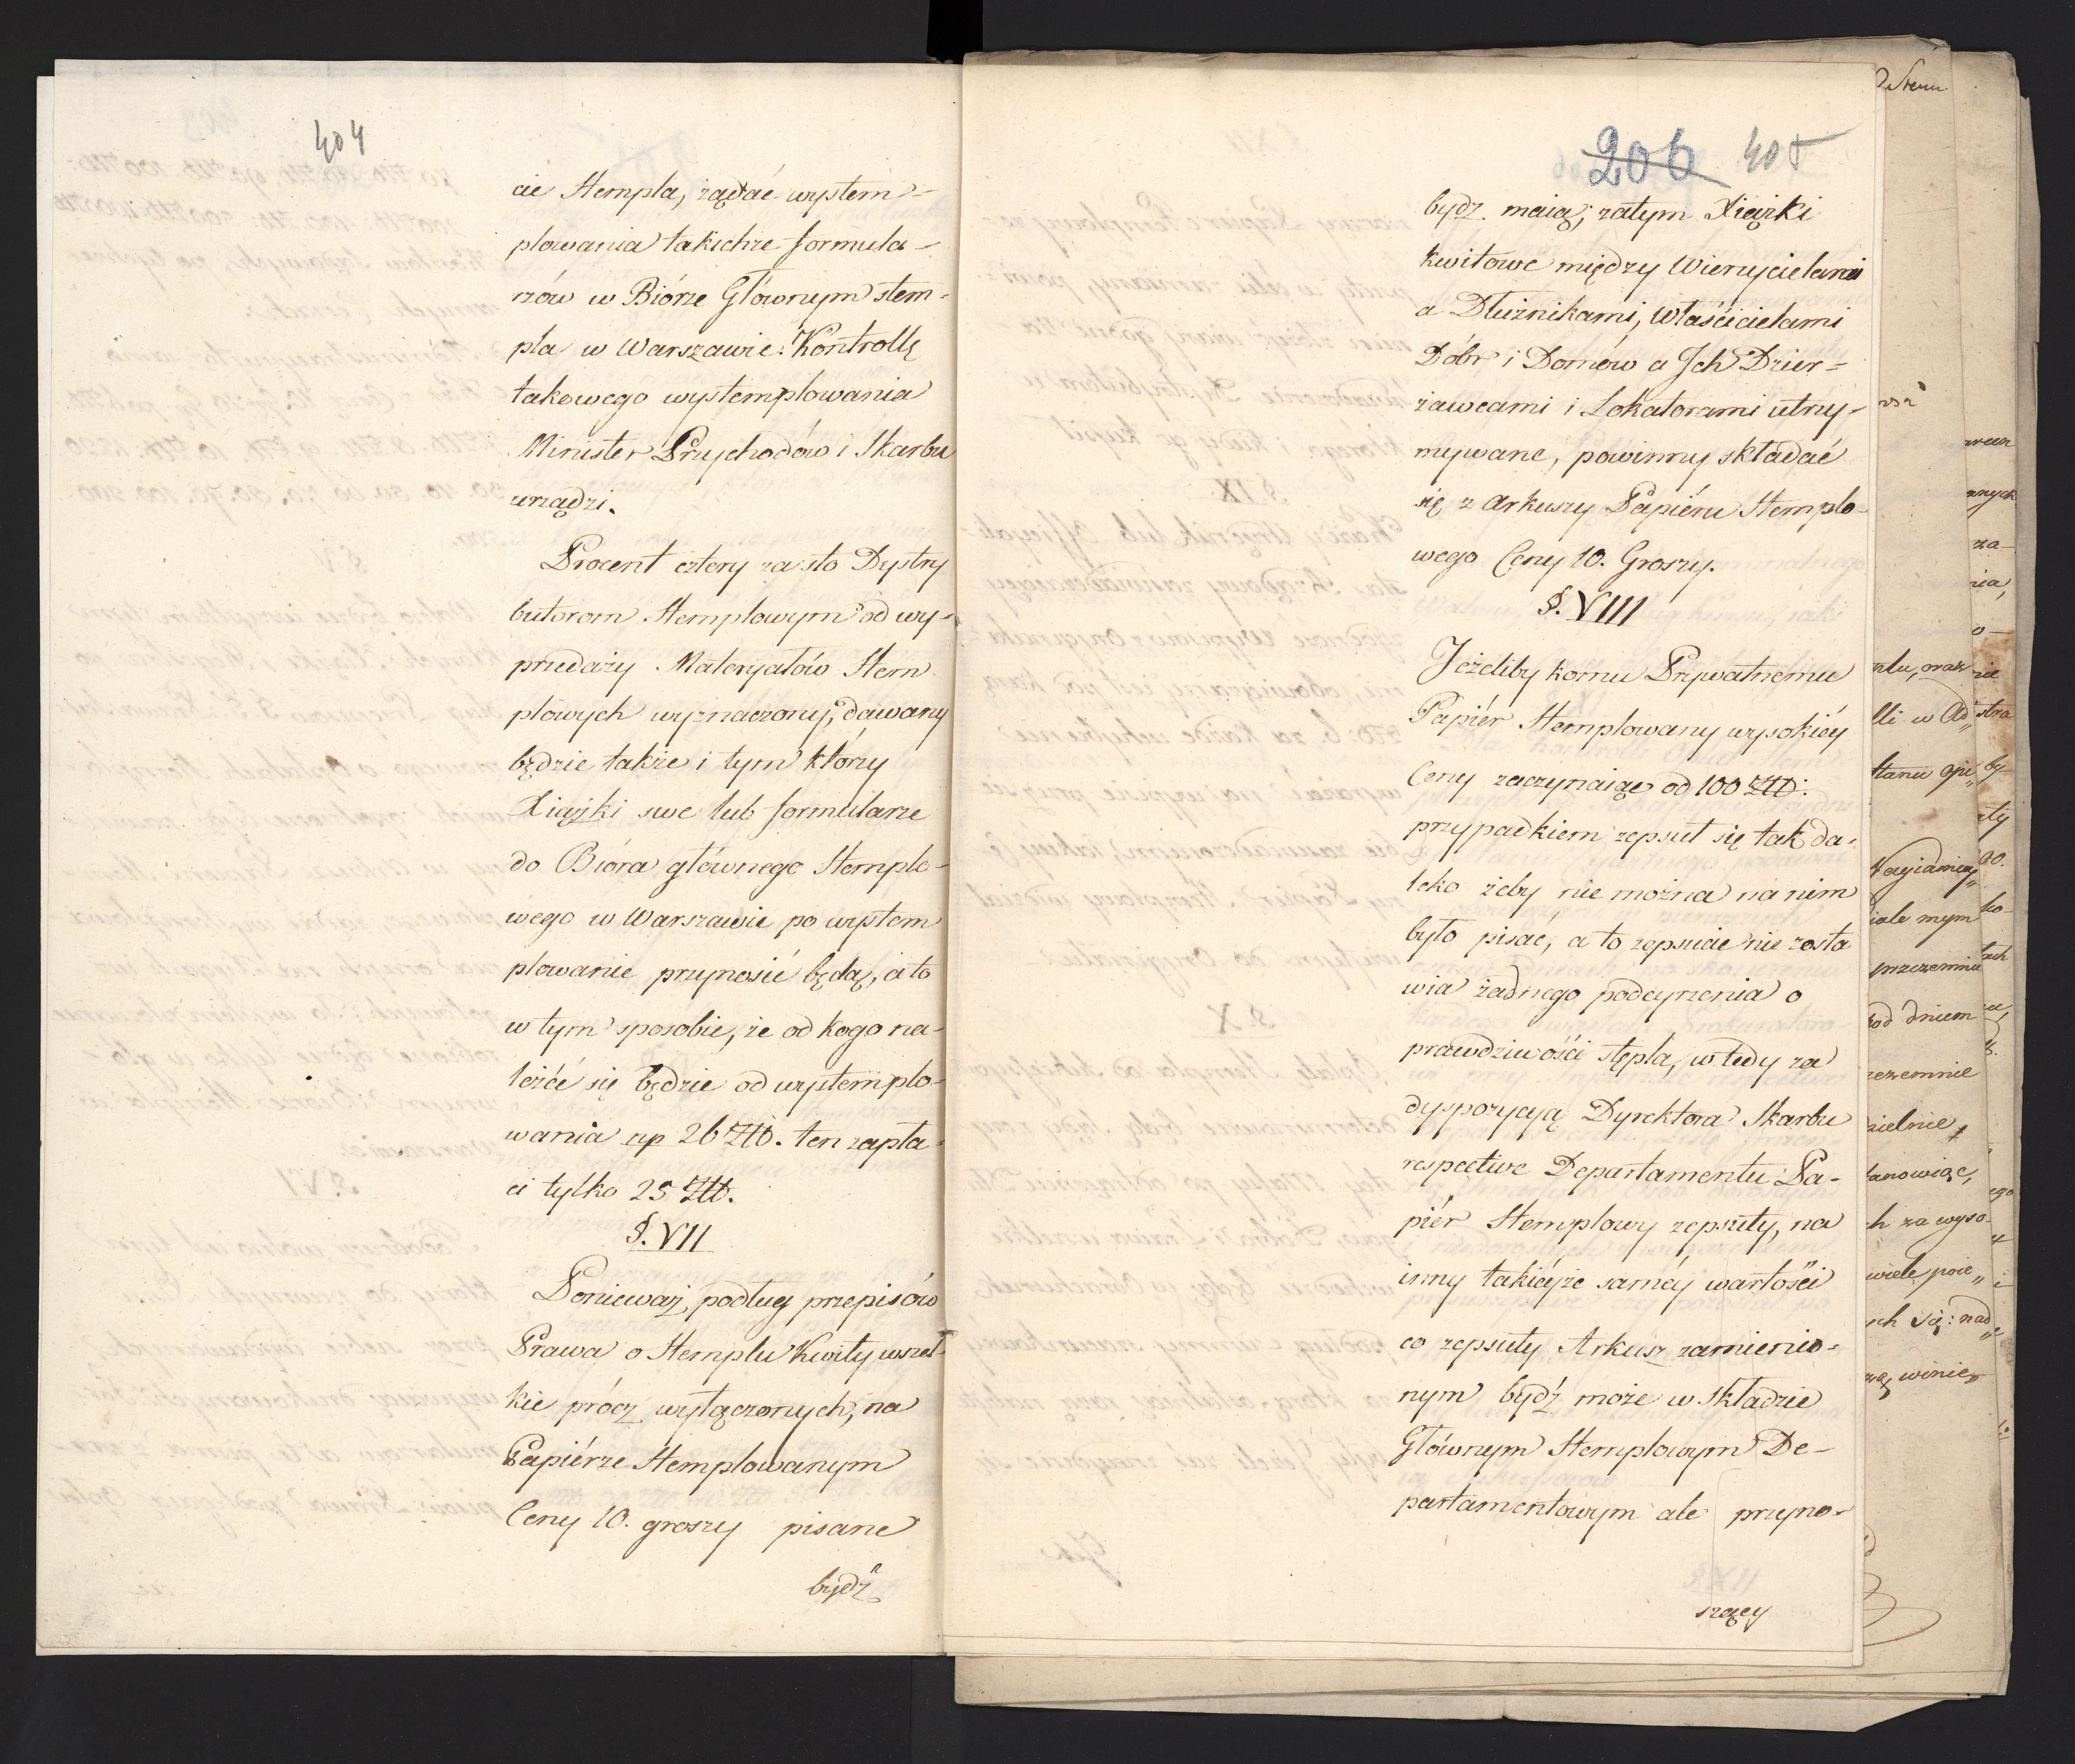 404
cie Stempla, żądać wystem-
plowania takichże formula-
rzów w Biórze Głównym stem-
pla w Warszawie: Kontrollę
takowego wystemplowania
Minister Przychodów i Skarbu
urządzi.
Procent cztery za sto Dystry
butorom Stemplowym od wy-
przedaży Materyałów Stem
plowych wyznaczony, dawany
będzie także i tym którzy
Xiążki swe lub formularze
do Bióra głównego Stemplo-
wego w Warszawie po wystem
plowanie przynosić będą, a to
w tym sposobie, że od kogo na-
leżeć się będzie od wystemplo-
wania np 26 Złt. ten zapła-
ci tylko 25 Złt.
§. VII
Ponieważ, podług przepisów
Prawa o Stemplu Kwity wszel-
kie prócz wyłączonych, na
Papiérze Stemplowanym
Ceny 10. groszy pisane
bydź
206 405
bydź maią; zatym Xiążki
kwitowe między Wierzycielami
a Dłużnikami, Właścicielami
Dóbr i Domów a Jch Dzier-
żawcami i Lokatorami utrzy-
mywane, powinny składać
się z Arkuszy Papiéru Stemplo-
wego Ceny 10. Groszy.
§. VIII
Jeżeliby komu Prywatnemu
Papiér Stemplowany wysokiéy
Ceny zaczynaiąc od 100 Złt:
przypadkiem zepsuł się tak da-
leko żeby nie można na nim
było pisać, a to zepsucie nie zosta
wia żadnego podeyrzenia o
prawdziwości stępla, wtedy za
dyspozycyą Dyrektora Skarbu
respective Departamentu Pa-
piér Stemplowy zepsuty, na
inny takiéyże saméy wartości
co zepsuty Arkusz zamienio-
nym bydź może w Składzie
Głównym Stemplowym De-
partamentowym ale przyno-
szący